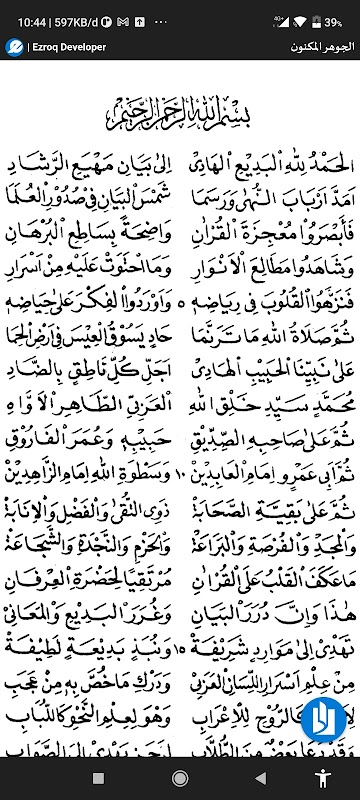 10:44 | 597KB/d
4G+ 39%
| Ezroq Developer الجوهر المكنون
بِسْمِ اللهِ الرَّحْمَنِ الرَّحِيْمِ
الحَمْدُ لِلّٰهِ الْبَدِيْعِ الْهَادِيْ إِلَى بَيَانِ مَهْيَعِ الرَّشَادِ
أَمَدَّ أَرْبَابَ النُّهَى وَرَسَمَا شَمْسَ الْبَيَانِ فِيْ صُدُوْرِ الْعُلَمَا
فَأَبْصَرُوْا مُعْجِزَةَ الْقُرْاٰنِ وَاضِحَةً بِسَاطِعِ الْبُرْهَانِ
وَشَاهَدُوْا مَطَالِعَ الْأَنْوَارِ وَمَا احْتَوَتْ عَلَيْهِ مِنْ أَسْرَارِ
فَنَزَّهُوا الْقُلُوْبَ فِيْ رِيَاضِهِ ٥ وَأَوْرَدُوا الْفِكْرَ عَلَى حِيَاضِهِ
ثُمَّ صَلَاةُ اللهِ مَا تَرَنَّمَا حَادٍ يَسُوْقُ الْعِيْسَ فِيْ أَرْضِ الْحِمَا
عَلَى نَبِيِّنَا الْحَبِيْبِ الْهَادِيْ أَجَلِّ كُلِّ نَاطِقٍ بِالضَّادِ
مُحَمَّدٍ سَيِّدِ خَلْقِ اللهِ الْعَرَبِيِّ الطَّاهِرِ الْأَوَّاهِ
ثُمَّ عَلَى صَاحِبِهِ الصِّدِّيْقِ حَبِيْبِهِ وَعُمَرَ الْفَارُوْقِ
ثُمَّ أَبِيْ عَمْرٍو إِمَامِ الْعَابِدِيْنَ ١٠ وَسَطْوَةِ اللهِ إِمَامِ الزَّاهِدِيْنَ
ثُمَّ عَلَى بَقِيَّةِ الصَّحَابَةْ ذَوِي التُّقَى وَالْفَضْلِ وَالْإِنَابَةْ
وَالْمَجْدِ وَالْفُرْصَةِ وَالْبَرَاعَةْ وَالْحَزْمِ وَالنَّجْدَةِ وَالشَّجَاعَةْ
مَا عَكَفَ الْقَلْبُ عَلَى الْقُرْاٰنِ مُرْتَقِيًا لِحَضْرَةِ الْعِرْفَانِ
هٰذَا وَإِنَّ دُرَرَ الْبَيَانِ وَغُرَرَ الْبَدِيْعِ وَالْمَعَانِيْ
تَهْدِيْ إِلَى مَوَارِدٍ شَرِيْفَةْ ١٥ وَنُبَذٍ بَدِيْعَةٍ لَطِيْفَةْ
مِنْ عِلْمِ أَسْرَارِ اللِّسَانِ الْعَرَبِيْ وَدَرْكِ مَا خُصَّ بِهِ مِنْ عَجَبِ
كَالرُّوْحِ لِلْإِعْرَابِ وَهُوَ لِعِلْمِ النَّحْوِ كَاللُّبَابِ
وَقَدْ دَعَا بَعْضٌ مِنَ الطُّلَّابِ يَهْدِيْ إِلَى الصَّوَابِ